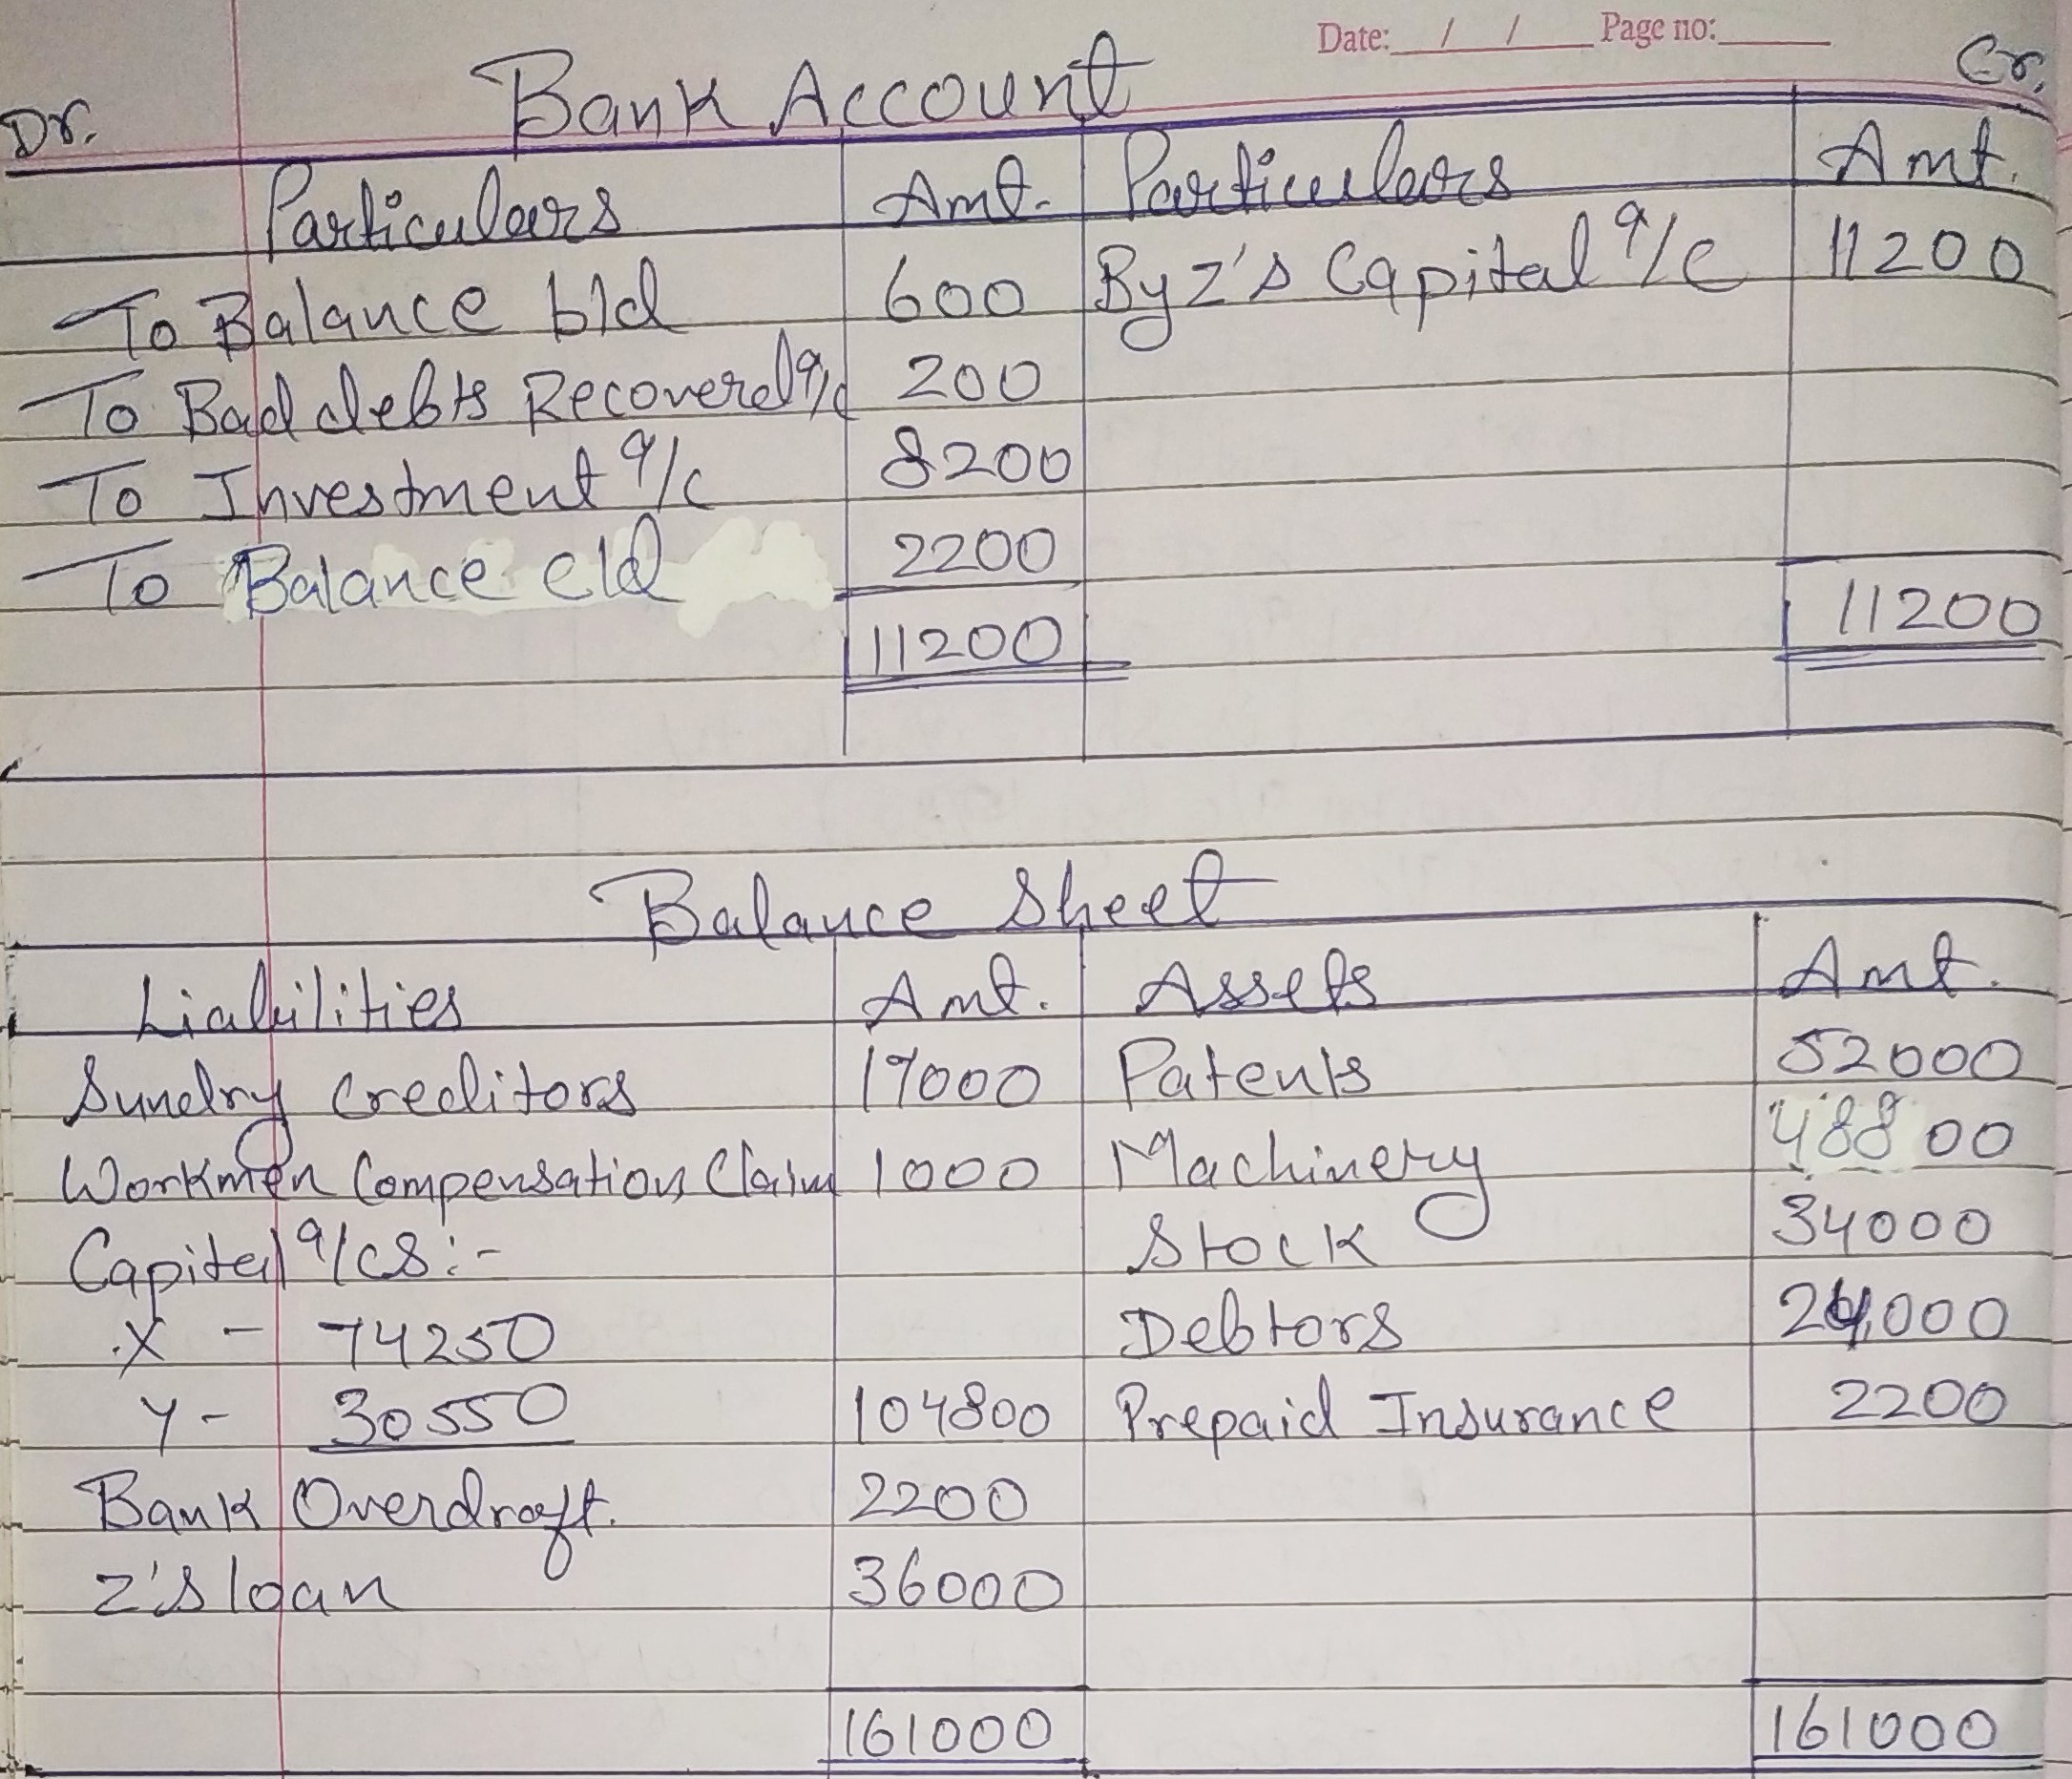 Date: / / Page no:
Dr. Bank Account Cr.
Particulars Amt. Particulars Amt.
To Balance b/d 600 By Z's Capital a/c 11200
To Bad debts Recovered a/c 200
To Investment a/c 8200
To Balance c/d 2200
11200 11200
Balance Sheet
Liabilities Amt. Assets Amt.
Sundry Creditors 17000 Patents 52000
Workmen Compensation Claim 1000 Machinery 48800
Capital a/cs:- Stock 34000
X - 74250 Debtors 24000
Y - 30550 104800 Prepaid Insurance 2200
Bank Overdraft. 2200
Z's loan 36000
161000 161000